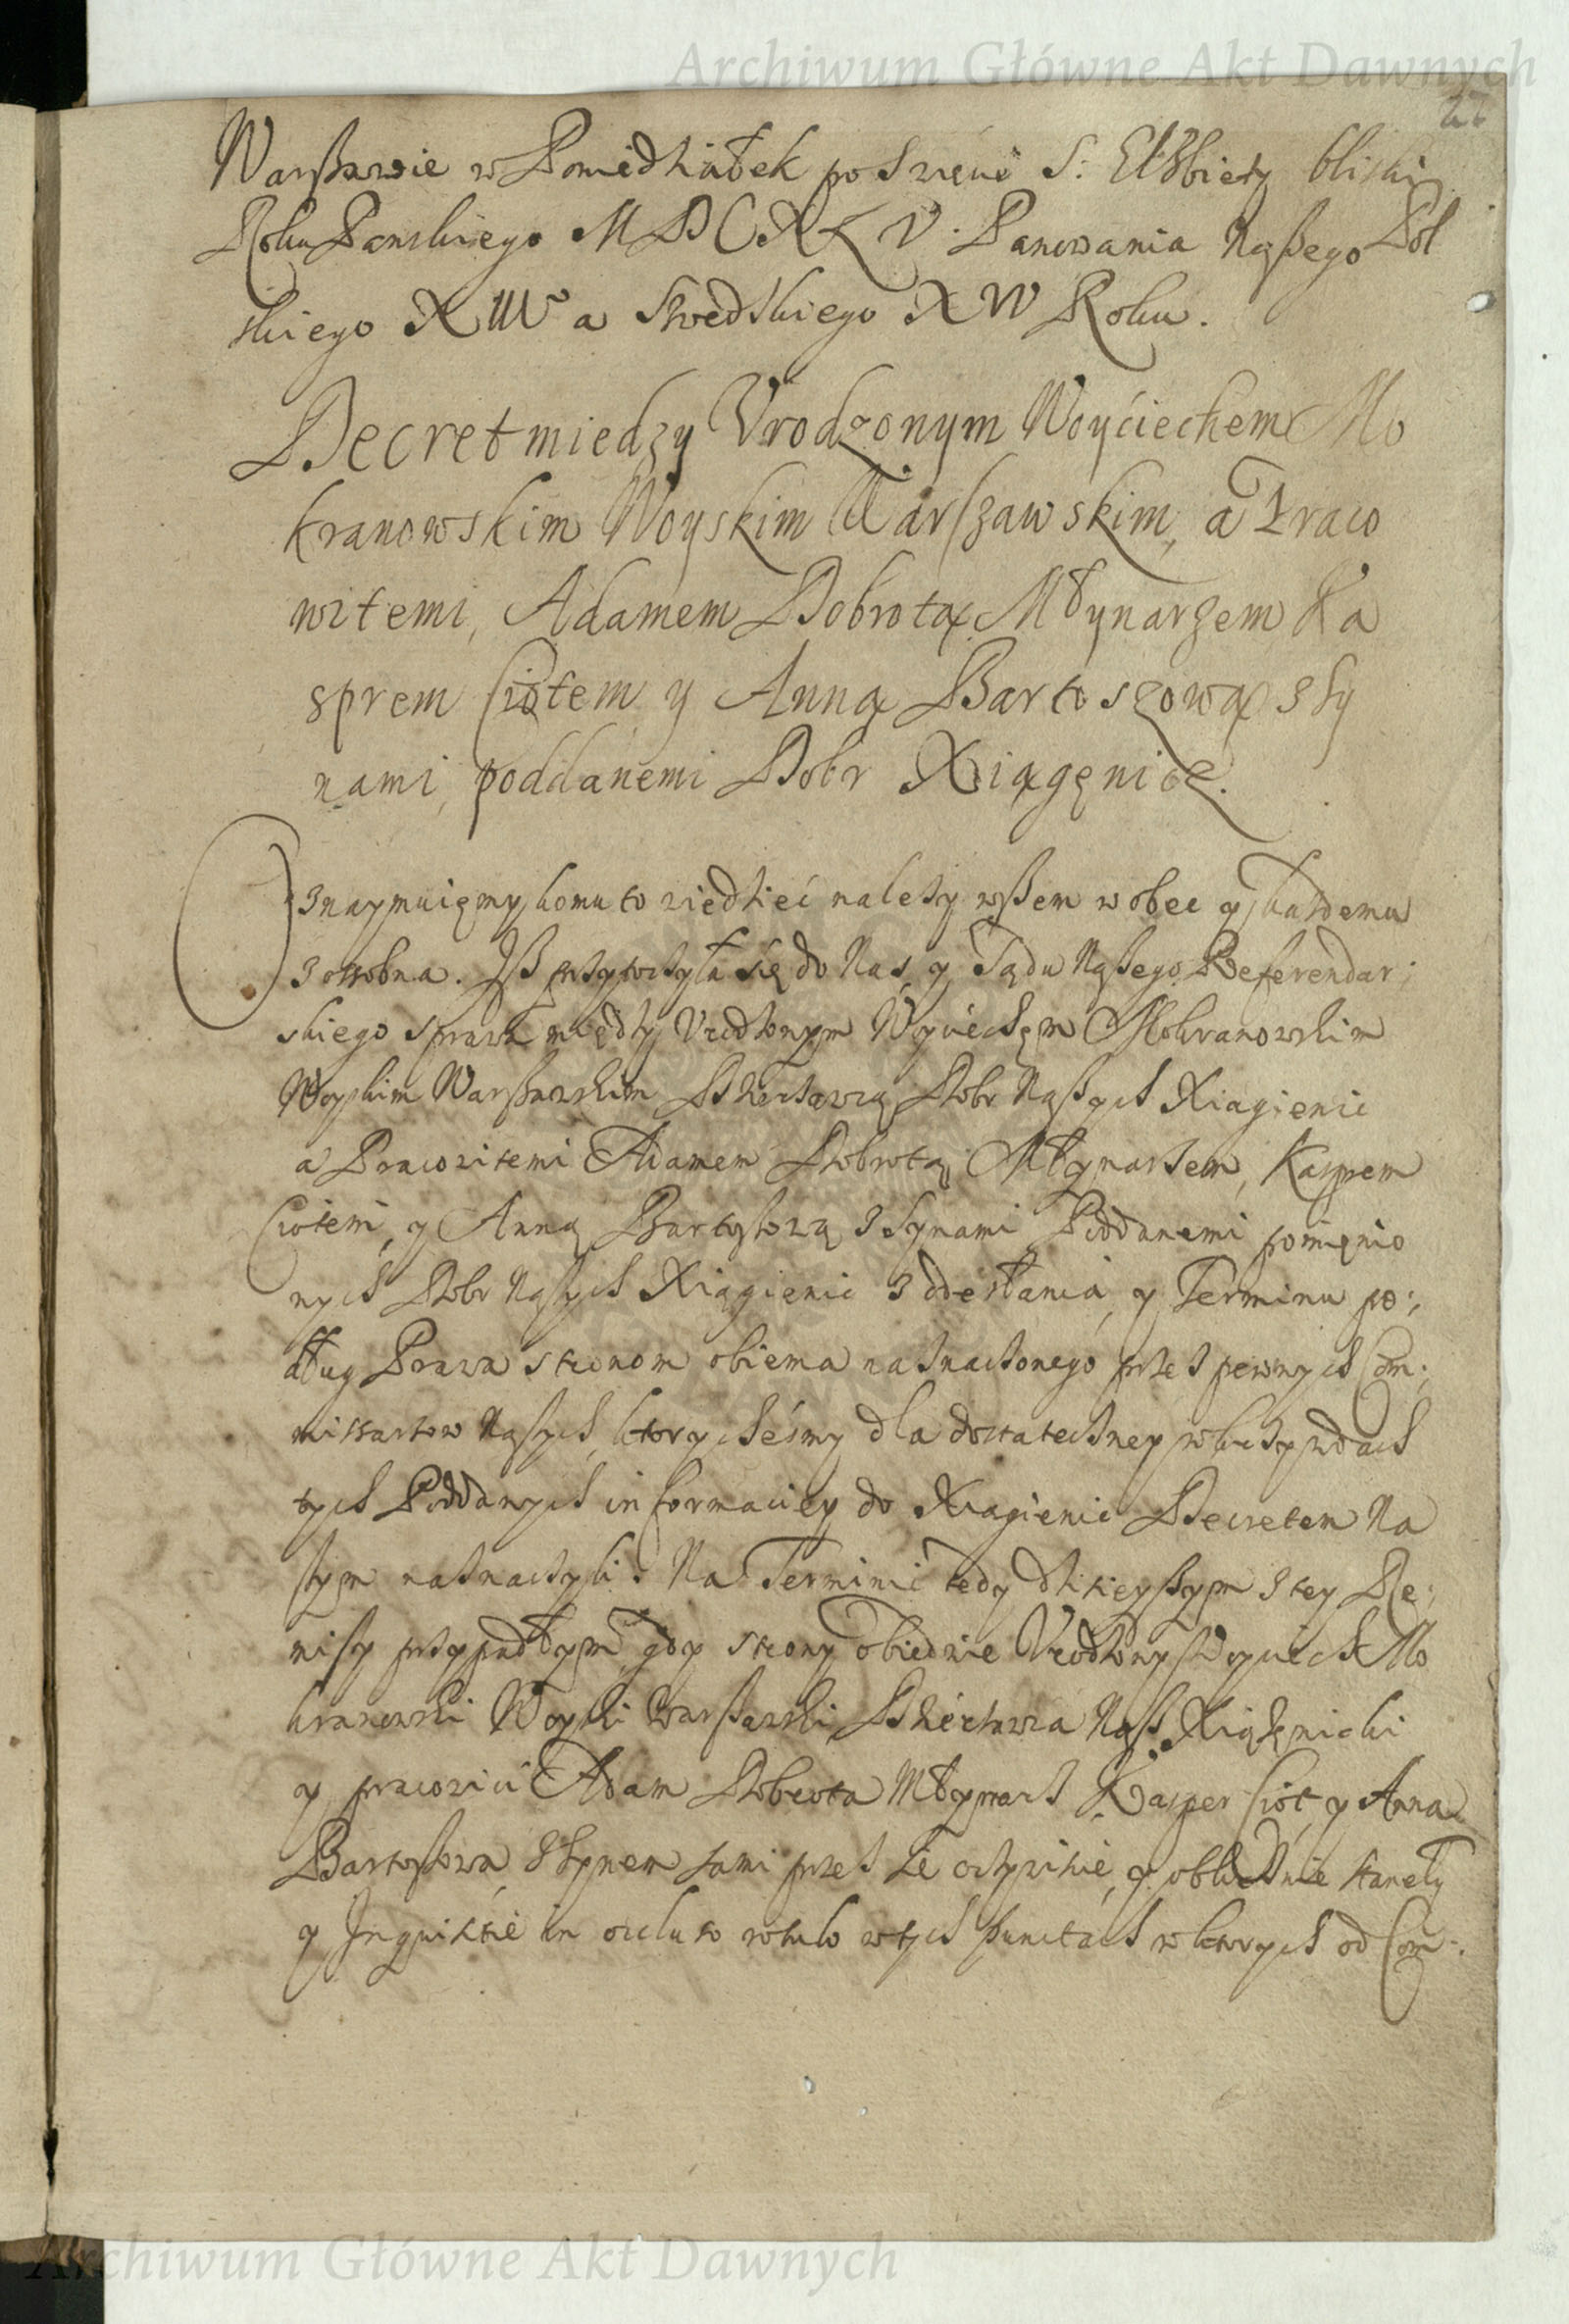 Archiwum Główne Akt Dawnych
Warßawie w Poniedziałek po Swięcie S: Elżbiety bliski
Roku Panskiego MDCXLV. Panowania Naßego Pol
skiego XIII° a Szwedskiego XIV Roku.
Decret miedzy Vrodzonym Woyciechem Mo
kranowskim Woyskim Warszawskim, a Praco
witemi, Adamem Dobrotą Młynarzem Ka
sprem Ciotem y Anną Bartoszową z Sy
nami, poddanemi Dobr Xiążęnice.
Oznaymuięmy komu to wiedzieć należy wßem wobec y każdemu
z osobna. Iß przytoczyła się do Nas, y Sądu Naßego Referendar:
skiego sprawa między Vrodzonym Woyciechem Mokranowskim
Woyskim Warßawskim Dzierżawcą Dobr Naßych Xiążienic
a Pracowitemi Adamem Dobrotą Młynarzem, Kasprem
Ciotem, y Anną Bartoszową z Synami Poddanemi pomięnio
nych Dobr Naszych Xiążienic z odesłania, y Terminu po:
dług Prawa stronom obiema naznaczonego przez pewnych Com:
missarzow Naszych, ktorycheśmy dla dostateczney w krzywdach
tych Poddanych informaciey do Xiążienic Decretem Na
szym naznaczyli. Na Terminie tedy dzisieyszym z tey Re:
misy przypadłym, gdy strony obiedwie Vrodzony Woyciech Mo
kranowski Woyski Warßawski, Dzierżawca Naß Xiążęnicki
y pracowici Adam Dobrota Młynarz Kasper Ciot, y Anna
Bartoszowa, z Synem sami przez się oczywiście, y obliicznie stanęły
y Inquisitie in occluso rotulo w tych punctach w ktorych od Com:
Archiwum Główne Akt Dawnych